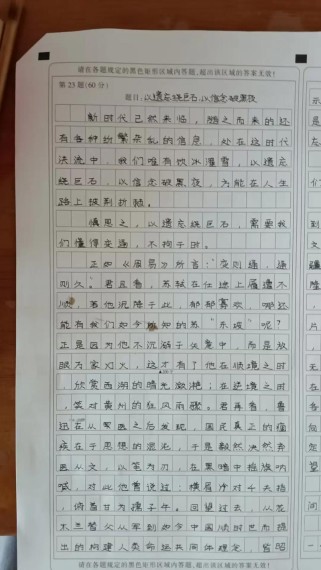 请在各题规定的黑色矩形区域内答题,超出该区域的答案无效!
第23题(60分)
题目:以遗忘绕巨石,以信念破黑夜
新时代已然来临,随之而来的还
有各种纷繁杂乱的信息,处在这时代
洪流中,我们唯有饮冰灌雪,以遗忘
绕巨石,以信念破黑夜,方能在人生
路上披荆折棘。
慎思之,以遗忘绕巨石,需要我
们懂得变通,不拘于时。
正如《周易》所言:"变则通,通
则久。"君且看,苏轼在仕途上屡遭不
顺,若他沉陷于此,郁郁寡欢,哪还
能有我们如今熟知的苏"东坡"呢?
正是因为他不沉溺于失意中,而是放
眼万家灯火,这才有了他在顺境之时
,欣赏西湖的晴光潋滟;在逆境之时
,笑对黄州的狂风雨骤。君再看,鲁
迅在从军医之后发现,国民真正的病
疾在于思想的混沌,于是毅然决然弃
医从文,以笔为刃,在黑暗中摇旗呐
喊,对此他曾说过:横眉冷对千夫指
,俯首甘为孺子牛。回望过去,从花
木兰替父从军到如今中国顺时世而提
出的构建人类命运共同体理念,皆昭
请在各题规定的黑色矩形区域内答题,超出该区域的答案无效!